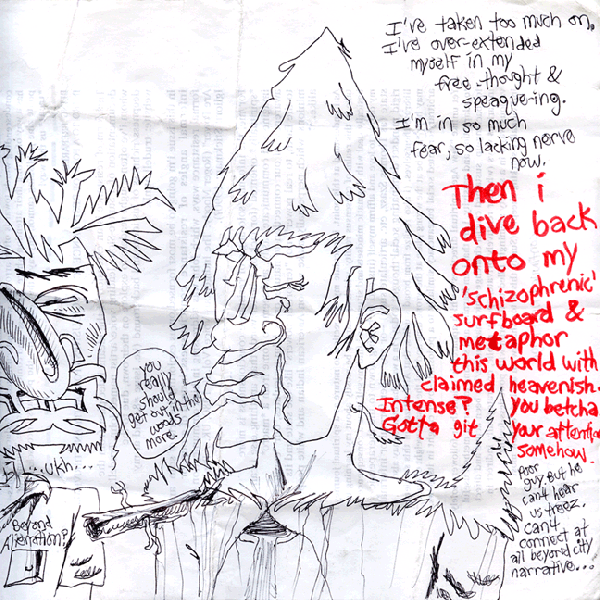 I've taken too much on.
I've over-extended
myself in my
free-thought &
speague-ing.
I'm in so much
fear, so lacking nerve
now.
Then i
dive back
onto my
'schizophrenic'
surfboard &
metaphor
this world with
claimed, heavenish.
Intense? You betcha
Gotta git your attention
somehow.
you
really
should
get out in the
woods
more.
...ukh...
Beyond
Alienation?
poor
guy. but he
can't hear
us treez.
can't
connect at
all beyond city
narrative...